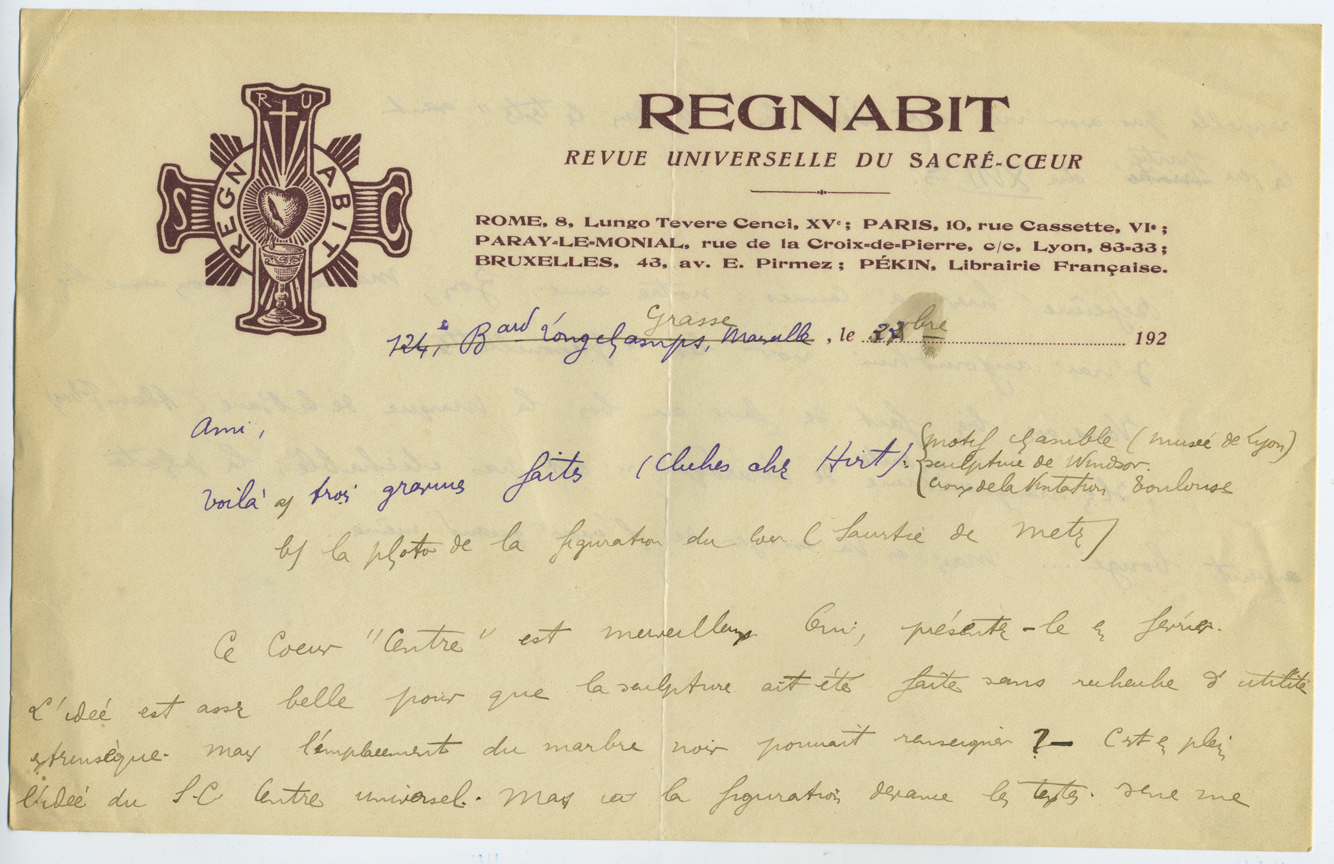 R U
S C
REGNABIT
REGNABIT
REVUE UNIVERSELLE DU SACRÉ-CŒUR
ROME, 8, Lungo Tevere Cenci, XVe; PARIS, 10, rue Cassette, VIe;
PARAY-LE-MONIAL, rue de la Croix-de-Pierre, c/c. Lyon, 83-33;
BRUXELLES, 43, av. E. Pirmez; PÉKIN, Librairie Française.
Grasse
124, Bard Longchamps, Marseille, le 22 bre 192
Ami,
Voilà a) trois gravures faites (Clichés chez Hirt):
motif chasuble (musée de Lyon)
sculpture de Windsor.
Croix de la Visitation Toulouse
b) la photo de la figuration du Coeur de Metz)
Ce Coeur "Centre" est merveilleux Oui, présentez-le en février.
L'idée est assez belle pour que la sculpture ait été faite sans recherche d'utilité
extrinsèque. Mais l'emplacement du marbre noir pourrait renseigner ? — C'est en plein
l'idée du S-C Centre universel. Mais ici la figuration devance les textes. Je ne me